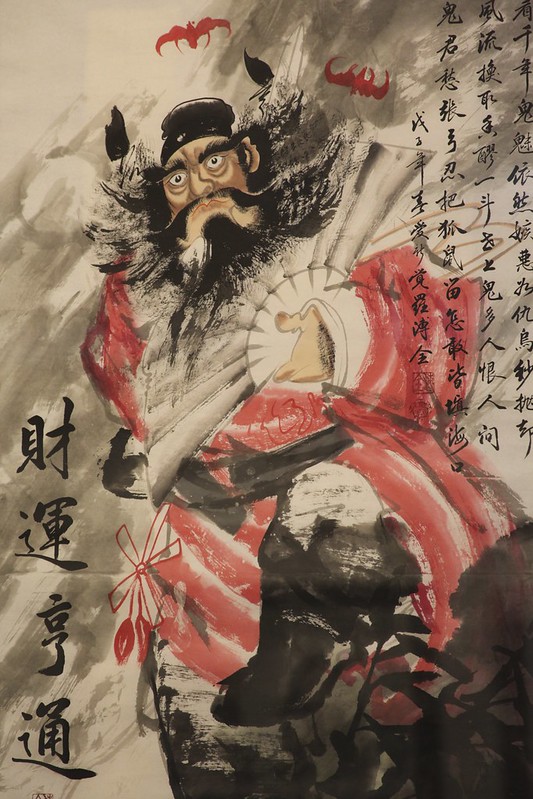 看千年鬼魅依然嫉惡如仇烏紗抛却
風流換取香醪一斗世上鬼多人恨人间
鬼君愁張弓忍把狐鼠留怎敢皆填海口
戊子年春愛新覺羅溥
財運亨通